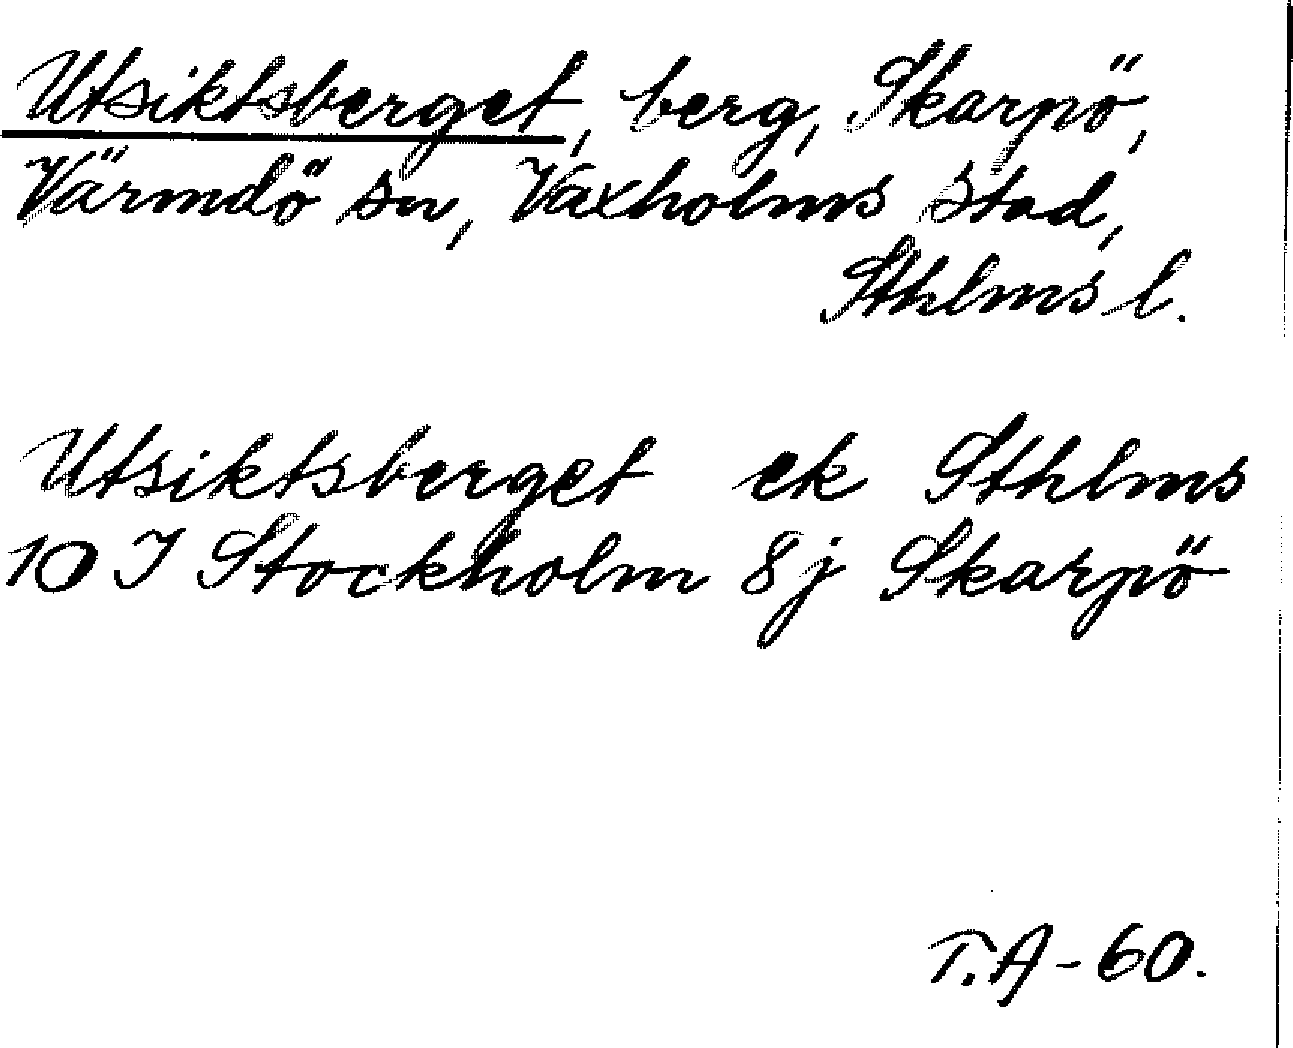 Utsiktsberget, berg, Skarpö,
Värmdö sn, Vaxholms stad,
Sthlms l.
Utsiktsberget ek Sthlms
10 I Stockholm 8j Skarpö
T.A-60.